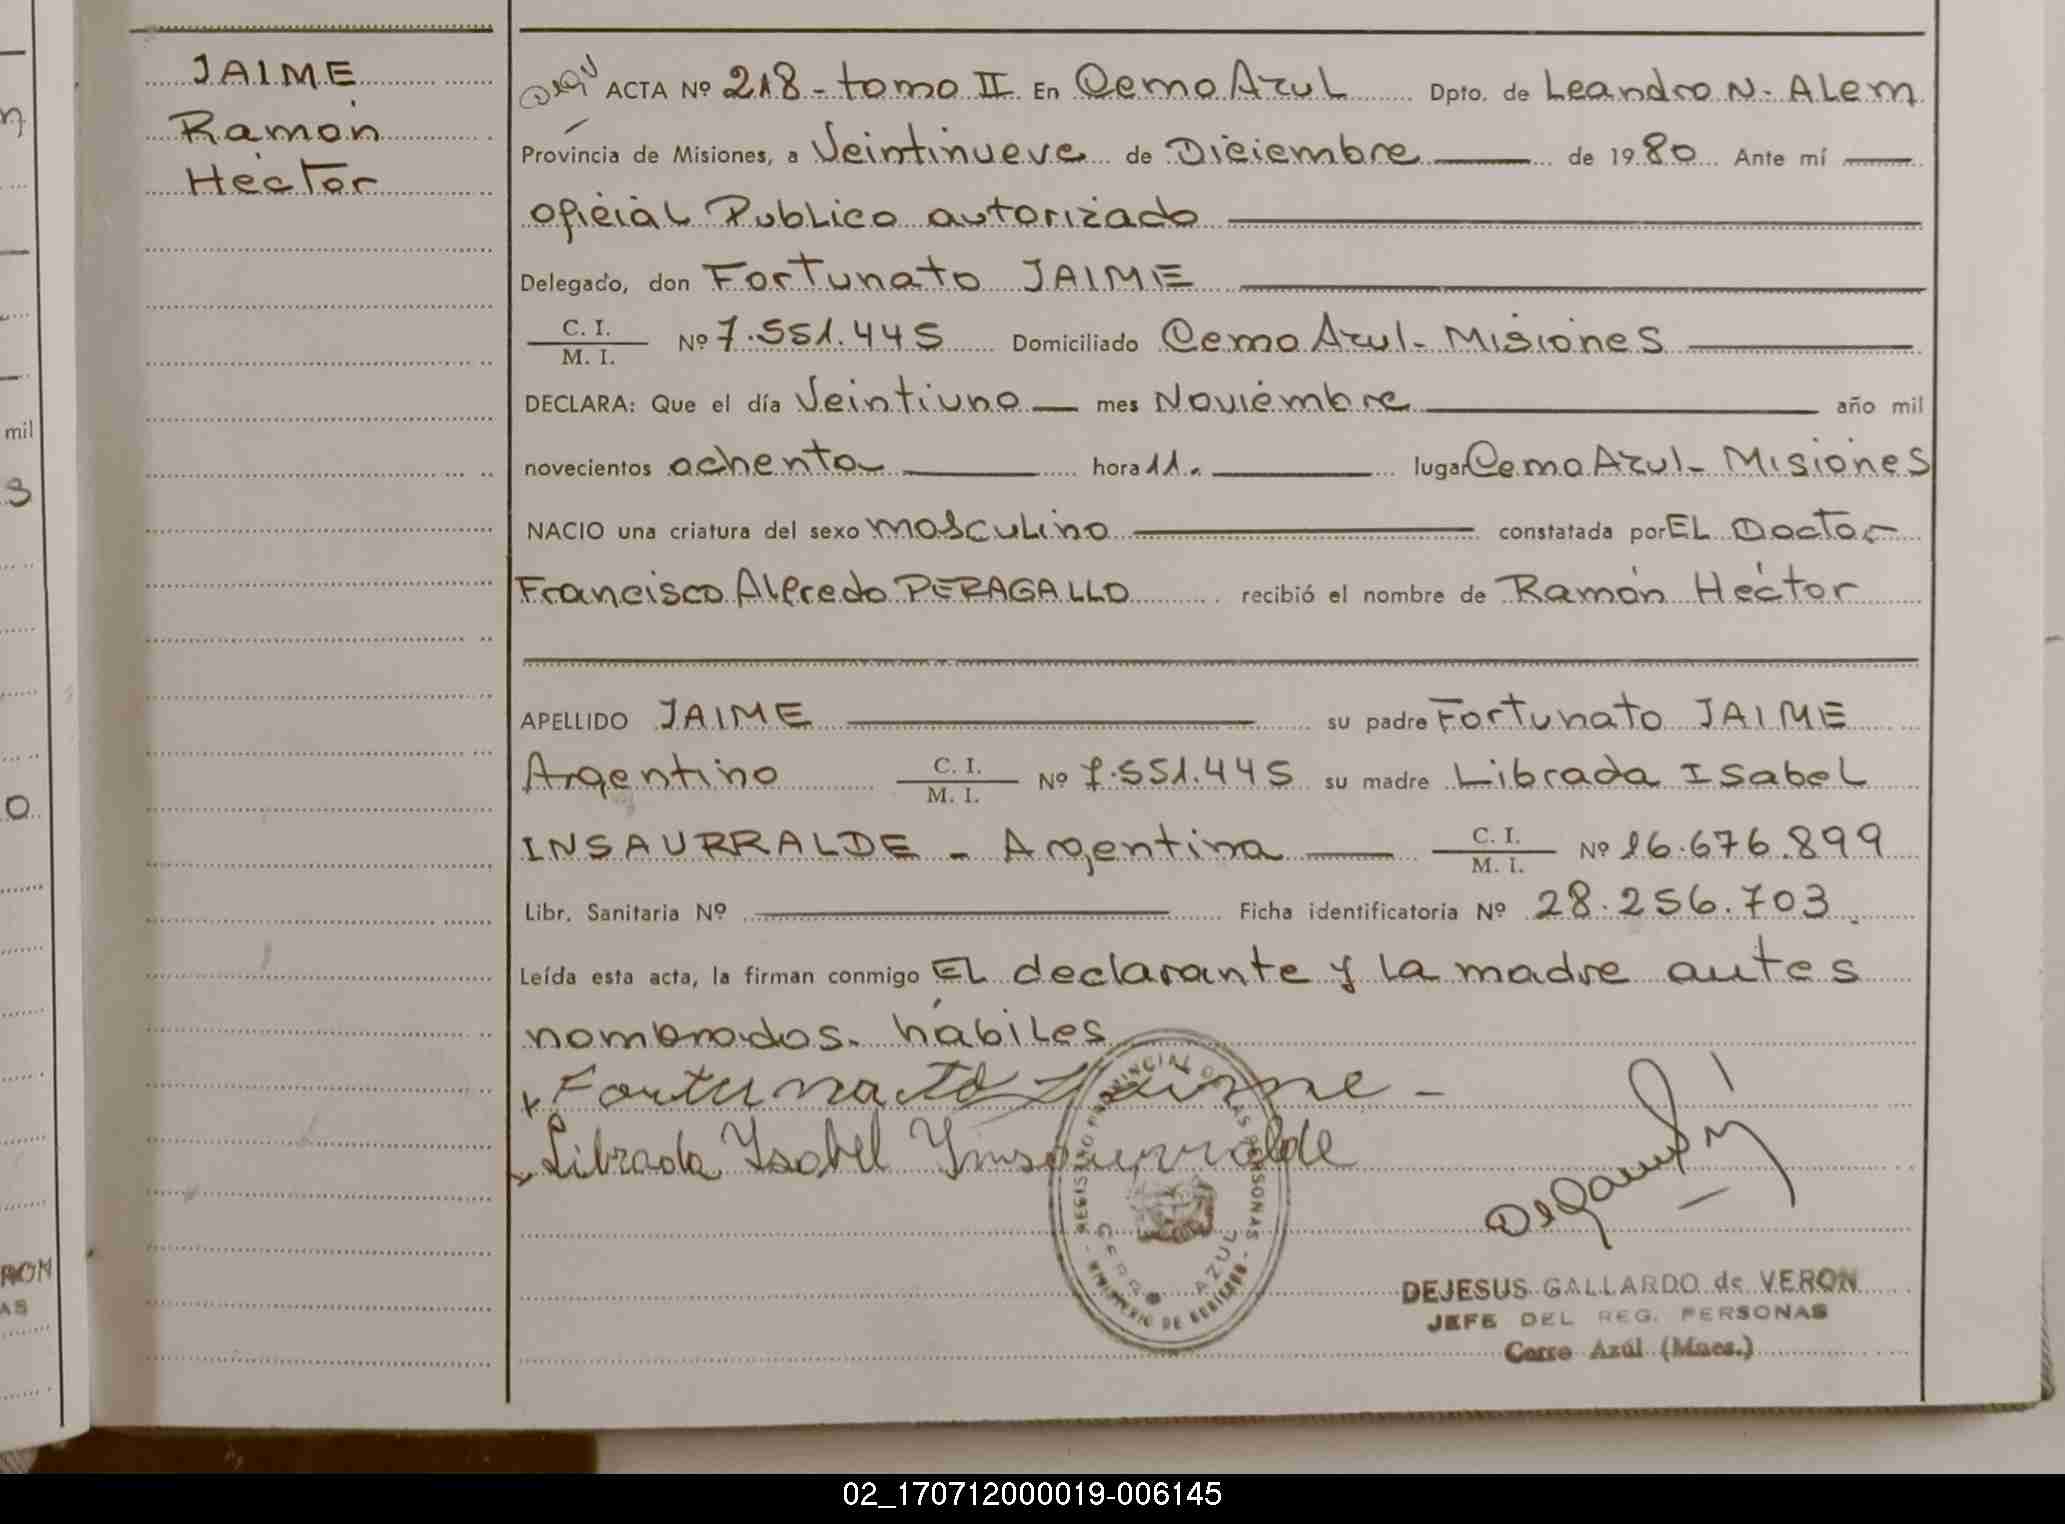 JAIME
Ramón
Héctor
ACTA Nº 218 - tomo II En Cerro Azul Dpto. de Leandro N. Alem
Provincia de Misiones, a Veintinueve de Diciembre de 1980 Ante mí
oficial Publico autorizado
Delegado, don Fortunato JAIME
C. I.
M. I. Nº 7.551.445 Domiciliado Cerro Azul - Misiones
DECLARA: Que el día Veintiuno mes Noviembre año mil
novecientos ochenta hora 11. lugar Cerro Azul - Misiones
NACIO una criatura del sexo masculino constatada por EL Doctor
Francisco Alfredo PERAGALLO recibió el nombre de Ramón Héctor
APELLIDO JAIME su padre Fortunato JAIME
Argentino C. I. M. I. Nº 7.551.445 su madre Librada Isabel
INSAURRALDE - Argentina C. I. M. I. Nº 16.676.899
Libr. Sanitaria Nº Ficha identificatoria Nº 28.256.703
Leída esta acta, la firman conmigo EL declarante y la madre antes
nombrados. hábiles
Fortunato Jaime -
Librada Ysabel Ynsaurralde
REGISTRO PROVINCIAL DE LAS PERSONAS
CERRO AZUL
MINISTERIO DE GOBIERNO
DEJESUS GALLARDO de VERON
JEFE DEL REG. PERSONAS
Cerro Azúl (Mnes.)
mil
s
o
RON
AS
02_170712000019-006145